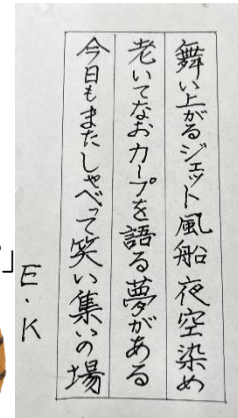 舞い上がるジェット風船夜空染め
老いてなおカープを語る夢がある
今日もまたしゃべって笑い集いの場
E・K
」